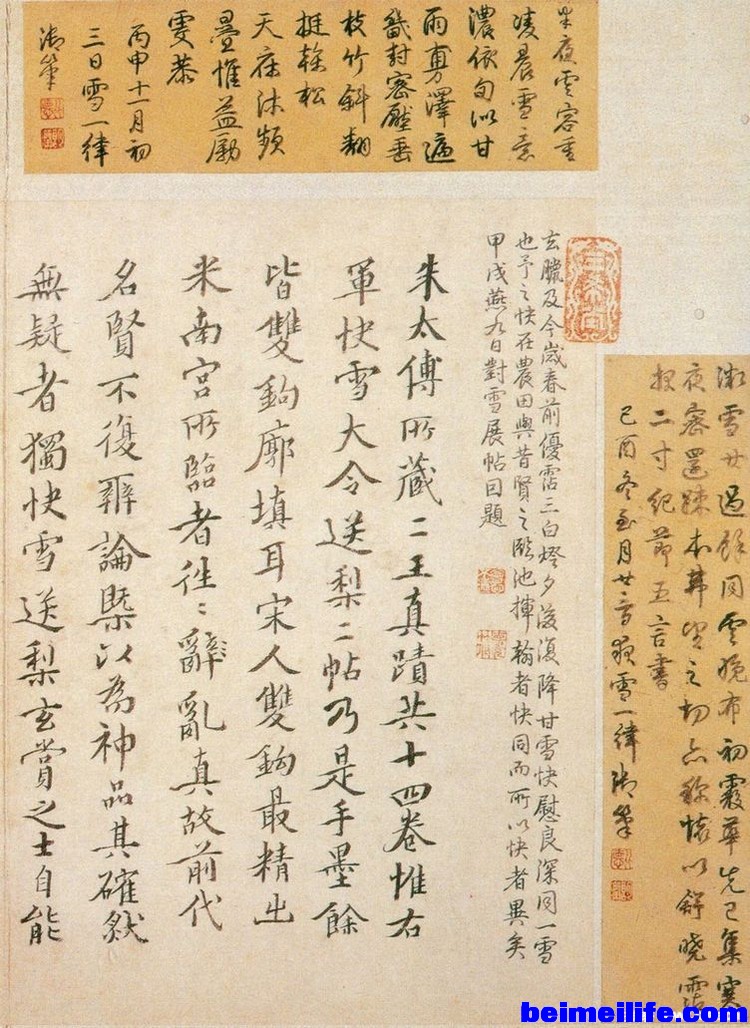 半夜雲容重
凌晨雪意
濃依旬似甘
雨勇澤遍
畿封密壓垂
枝竹斜翻
挺榦松
天庥沐頻
疊惟益勵
虔恭
丙申十一月初
三日雪一律
御筆
微雪廿過餘同雲晚布初霰華先已集
夜密還疎望之切懷以舒曉霑
報二寸紀節五言書
己酉冬至月廿雪一律御筆
去臘及今歲春前優霑三白燈夕後復降甘雪快慰良深同一雪
也予之快在農田與昔賢之臨池揮翰者快同而所以快者異矣
甲戌燕九日對雪展帖因題
朱太傅所藏二王真蹟共十四卷惟右
軍快雪大令送梨二帖乃是手墨餘
皆雙鉤廓填耳宋人雙鉤最精出
米南宮所臨者往〻辭亂真故前代
名賢不復辨論槩以為神品其確然
無疑者獨快雪送梨玄賞之士自能
beimeilife.com